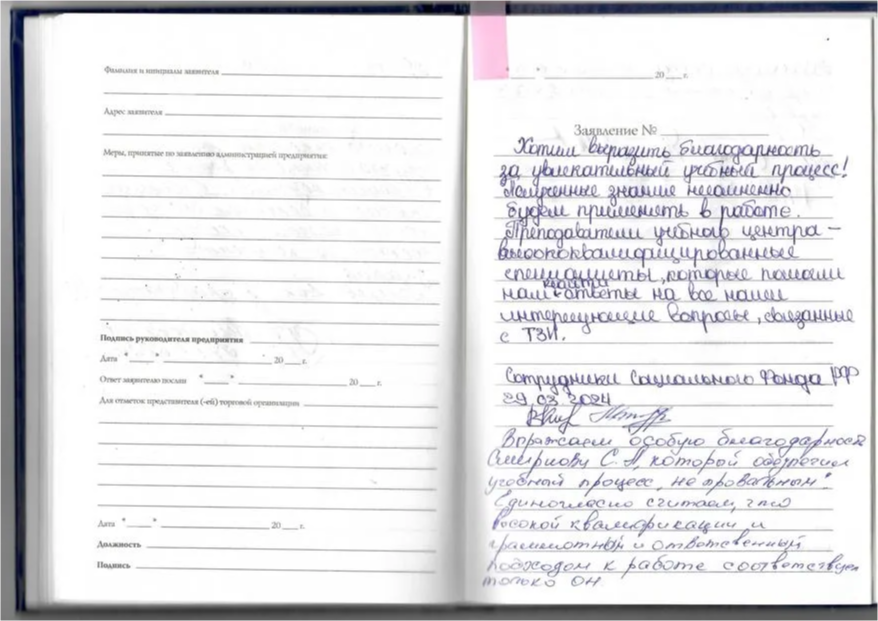 Фамилия и инициалы заявителя
Адрес заявителя
Меры, принятые по заявлению администрацией предприятия:
Подпись руководителя предприятия
Дата " " 20 г.
Ответ заявителю послан " " 20 г.
Для отметок представителя (-ей) торговой организации
Дата " " 20 г.
Должность
Подпись
" " 20 г.
Заявление №
Хотим выразить благодарность
за увлекательный учебный процесс!
Полученные знания несомненно
будем применять в работе.
Преподаватели учебного центра –
высококвалифицированные
специалисты, которые помогли
нам найти ответы на все наши
интересующие вопросы, связанные
с ТЗИ.
Сотрудники Социального Фонда РФ
29.03.2024
Выражаем особую благодарность
Смирнову С.А, который обеспечил
учебный процесс,
Единогласно считаем, что
высокой квалификации и
грамотный и ответственный
подходом к работе соответствует
только он